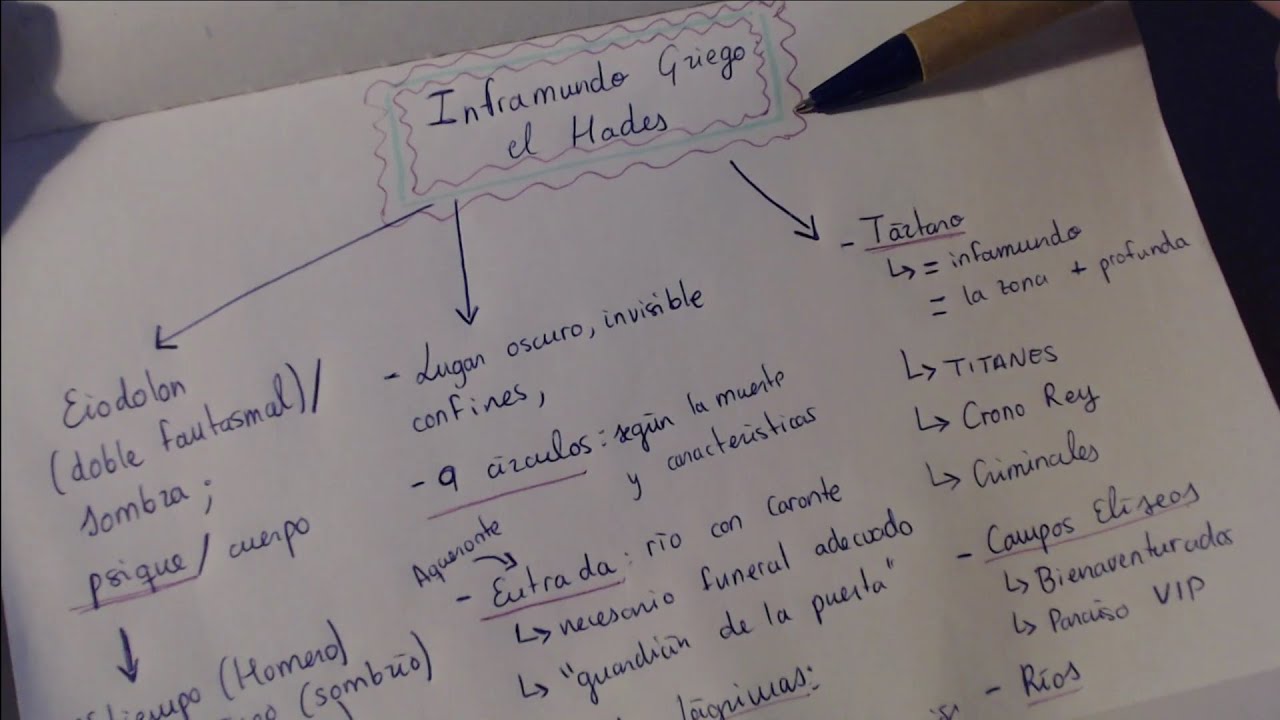 Inframundo Griego
el Hades
Eiodolon
(doble fantasmal)/
sombra;
psique/ cuerpo
tiempo (Homero)
(sombrío)
- Lugar oscuro, invisible
confines,
- 9 círculos: según la muerte
y características
Aqueronte
- Entrada: río con Caronte
↳ necesario funeral adecuado
↳ "guardián de la puerta"
lágrimas:
- Tártaro
↳ = infamundo
= la zona + profunda
↳ TITANES
↳ Crono Rey
↳ Criminales
- Campos Elíseos
↳ Bienaventurados
↳ Paraíso VIP
- Ríos